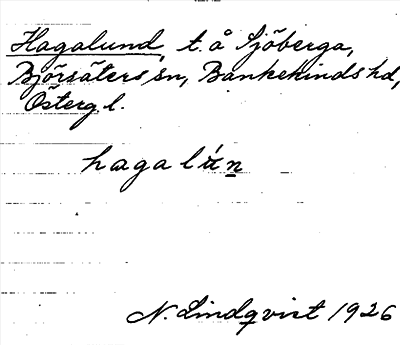 Hagalund, t. å Sjöberga,
Björsäters sn, Bankekinds hd,
Österg l.
hagalún
N. Lindqvist 1926